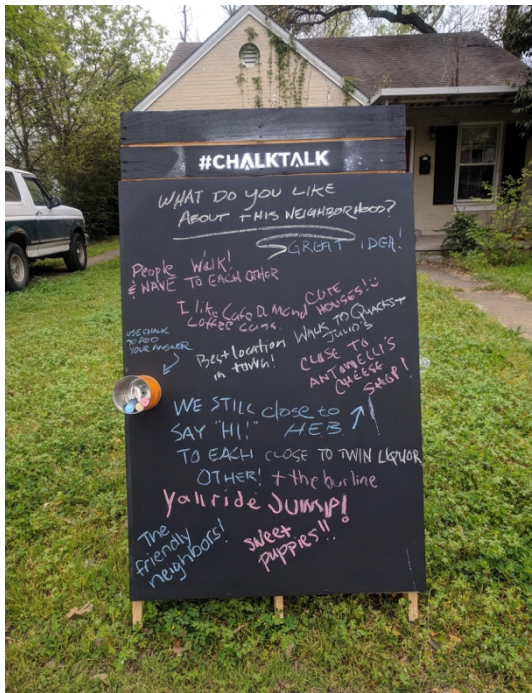 #CHALKTALK
WHAT DO YOU LIKE
ABOUT THIS NEIGHBORHOOD?
GREAT IDEA!
PEOPLE WALK!
& WAVE TO EACH OTHER
I like Cafe D. Mond
Coffee cans.
CUTE
HOUSES!
WALK TO QUACKS +
JULIO'S
USE CHALK
TO ADD
YOUR ANSWER
Best location
in town!
CLOSE TO
ANTONELLI'S
CHEESE
SHOP!
WE STILL
SAY "HI!"
TO EACH
OTHER!
close to
H.E.B.
CLOSE TO TWIN LIQUOR
+ the bus line
Yall ride JUMP!
The
friendly
neighbors!
sweet
puppies!!